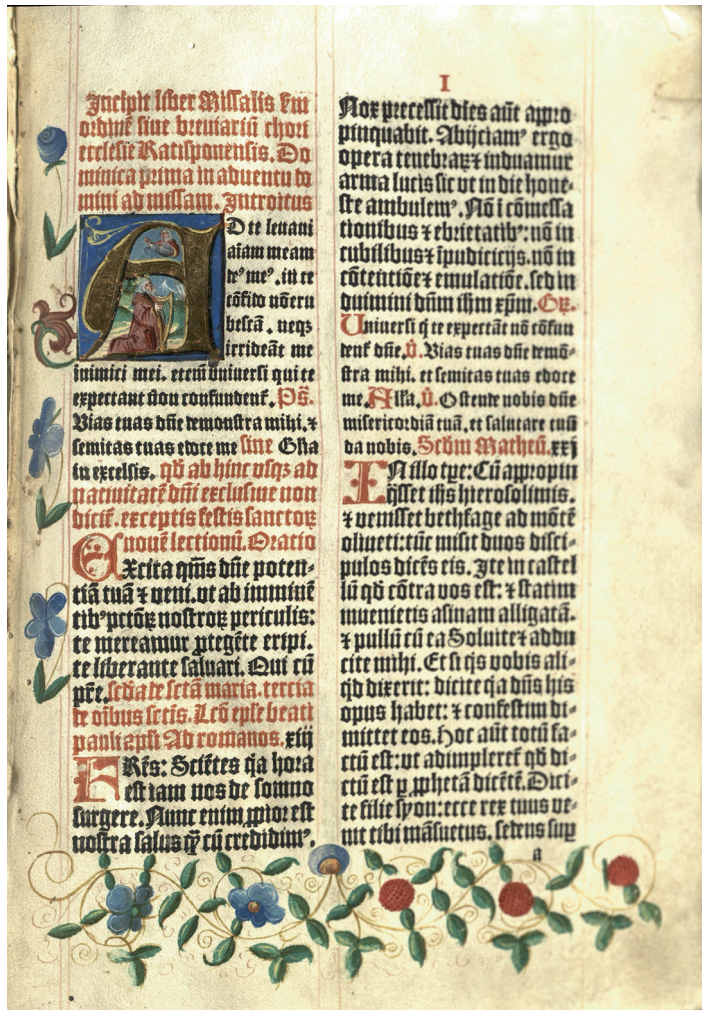 Incipit liber Missalis scḋm
ordinē siue breuiariū chori
ecclesie Ratisponensis. Do
minica prima in aduentu do
mini ad missam. Introitus
AD te leuaui
aīam meam
deꝰ meꝰ. in te
cōfido nō eru
bescā. neqꝫ
irrideāt me
inimici mei. etem̄ vniuersi qui te
expectant non confundent̄. Ps̄.
Vias tuas dn̄e demonstra mihi. ⁊
semitas tuas edoce me sine Gl̄ia
in excelsis. qd̄ ab hinc vsqꝫ ad
natiuitatē dn̄i exclusiue non
dicit̄. exceptis festis sanctoꝝ
nouē lectionū. Oratio
EXcita qm̄s dn̄e poten-
tiā tuā ⁊ veni. vt ab imminē
tibꝰ pctōꝝ nostroꝝ periculis:
te mereamur ꝓtegēte eripi.
te liberante saluari. Qui cū
pr̄e. scḋa de sctā maria. tercia
de oībus sctīs. Lcō epl̄e beati
pauli apl̄i Ad romanos. xiij
FRr̄es: Sciētes q̇a hora
est iam nos de somno
surgere. Nunc enim ꝓpior est
nostra salus qꝫ̄ cū credidimꝰ.
I
Nox precessit dies aūt appro
pinquabit. Abijciamꝰ ergo
opera tenebraꝝ ⁊ induamur
arma lucis sic vt in die hone-
ste ambulemꝰ. Nō ī cōmessa
tionibus ⁊ ebrietatibꝰ: nō in
cubilibus ⁊ īpudicicijs. nō in
cōtentiōe ⁊ emulatiōe. sed in
duimini dn̄m ihm̄ xpm̄. Gr̄.
Uniuersi q̇ te expectāt nō cōfun
dent̄ dn̄e. v̇. Vias tuas dn̄e demō-
stra mihi. et semitas tuas edoce
me. Alla. v̇. Ostende nobis dn̄e
misericordiā tuā. et salutare tuū
da nobis. Scḋm Matheū. xxj
IN illo tꝑe: Cū appropin
q̇sset ihs̄ hierosolimis.
⁊ venisset bethfage ad mōtē
oliueti: tūc misit duos disci-
pulos dicēs eis. Ite in castel
lū qd̄ cōtra vos est: ⁊ statim
inuenietis asinam alligatā.
⁊ pullū cū ea Soluite ⁊ addu
cite mihi. Et si q̇s vobis ali-
q̇d dixerit: dicite q̇a dn̄s his
opus habet: ⁊ confestim di-
mittet eos. Hoc aūt totū fa-
ctū est: vt adimpleret̄ qd̄ di-
ctū est ꝑ ꝓphetā dicētē. Dici-
te filie syon: ecce rex tuus ve-
nit tibi māsuetus. sedens suꝑ
a